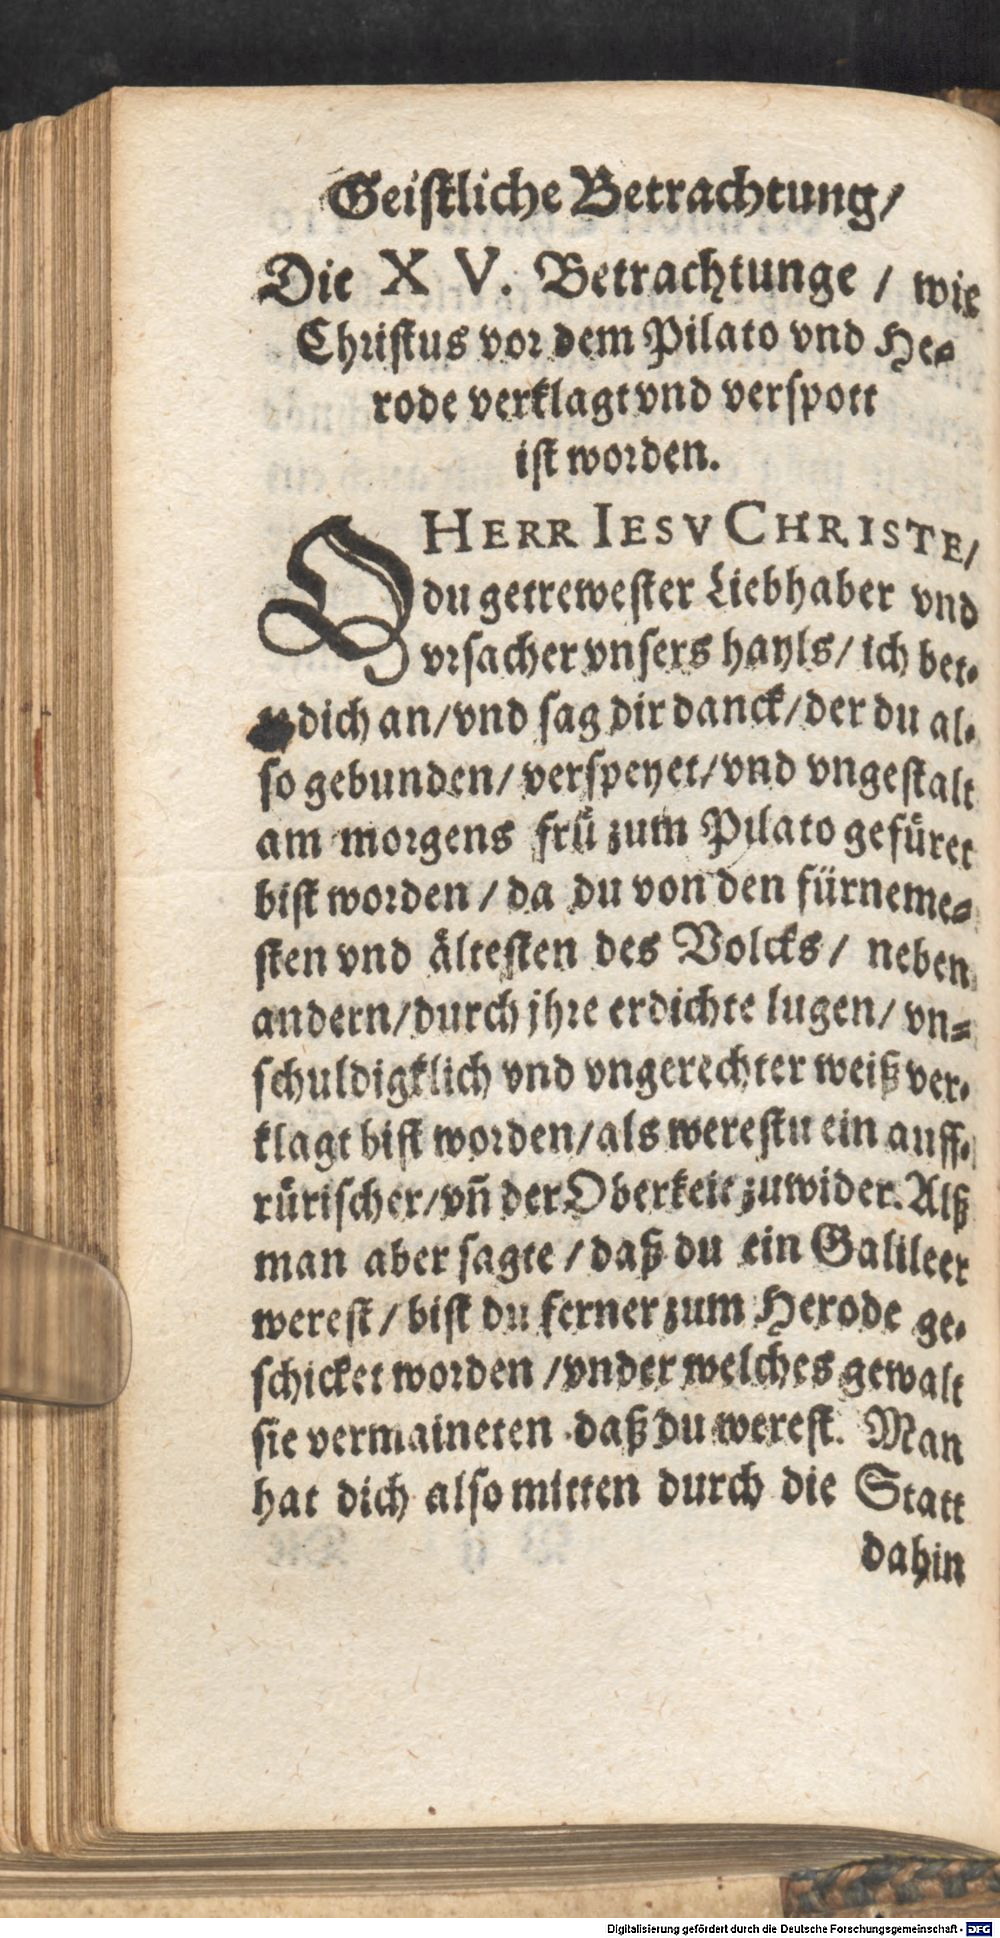 Geiſtliche Betrachtung/
Die XV. Betrachtunge / wie
Chriſtus vor dem Pilato vnd He⸗
rode verklagt vnd verſpott
iſt worden.
O HERR IESV CHRISTE/
du getreweſter Liebhaber vnd
vrſacher vnſers hayls/ ich bet⸗
dich an/ vnd ſag dir danck/ der du al⸗
ſo gebunden/ verſpeyet/ vnd vngeſtalt
am morgens frü zum Pilato gefüret
biſt worden / da du von den fürneme⸗
ſten vnd älteſten des Volcks / neben
andern/ durch jhre erdichte lugen/ vn⸗
ſchuldigklich vnd vngerechter weiß ver⸗
klagt biſt worden/ als wereſtu ein auff⸗
rüriſcher/ vñ der Oberkeit zuwider. Alß
man aber ſagte / daß du ein Galileer
wereſt / biſt du ferner zum Herode ge⸗
ſchicket worden / vnder welches gewalt
ſie vermaineten daß du wereſt. Man
hat dich alſo mitten durch die Statt
dahin
Digitalisierung gefördert durch die Deutsche Forschungsgemeinschaft - DFG